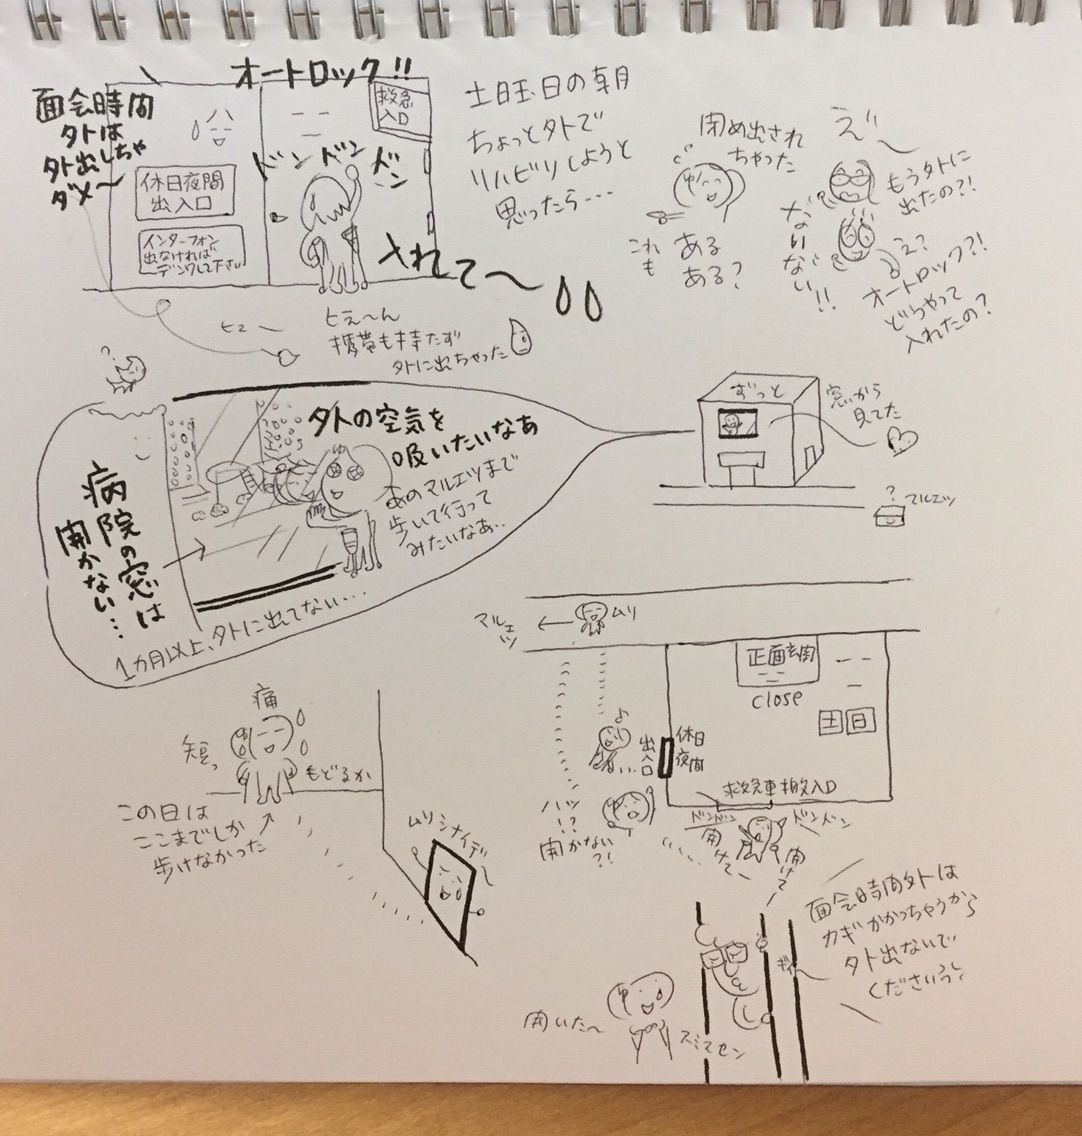 オートロック!!
面会時間
外は
外出しちゃ
ダメ〜
救急
入口
ドンドンドン
休日夜間
出入口
インターフォン
出なければ
デンワして下さい
入れて〜
土曜日の朝
ちょっと外で
リハビリしようと
思ったら・・・
閉め出され
ちゃった
これも
ある
ある?
え〜
もう外に
出たの?!
ないない!!
え?
オートロック?!
どうやって
入れたの?
ヒュー
とえ〜ん
携帯も持たず
外に出ちゃった
外の空気を
吸いたいなあ
あのマルエツまで
歩いて行って
みたいなあ..
病院の窓は
開かない・・・
1カ月以上、外に出てない・・・
ずっと
窓から
見てた
?
マルエツ
マルエツ
ムリ
正面玄関
close
土日
休日
夜間
出入口
救急車搬入口
ハッ
!?
開かない
?!
ドンドン
開けて〜
ドンドン
開けて
痛
短っ
もどるか
この日は
ここまでしか
歩けなかった
ムリシナイデ〜
面会時間外は
カギかかっちゃうから
外出ないで
くださいっ
ギィ〜
開いた〜
スミマセン